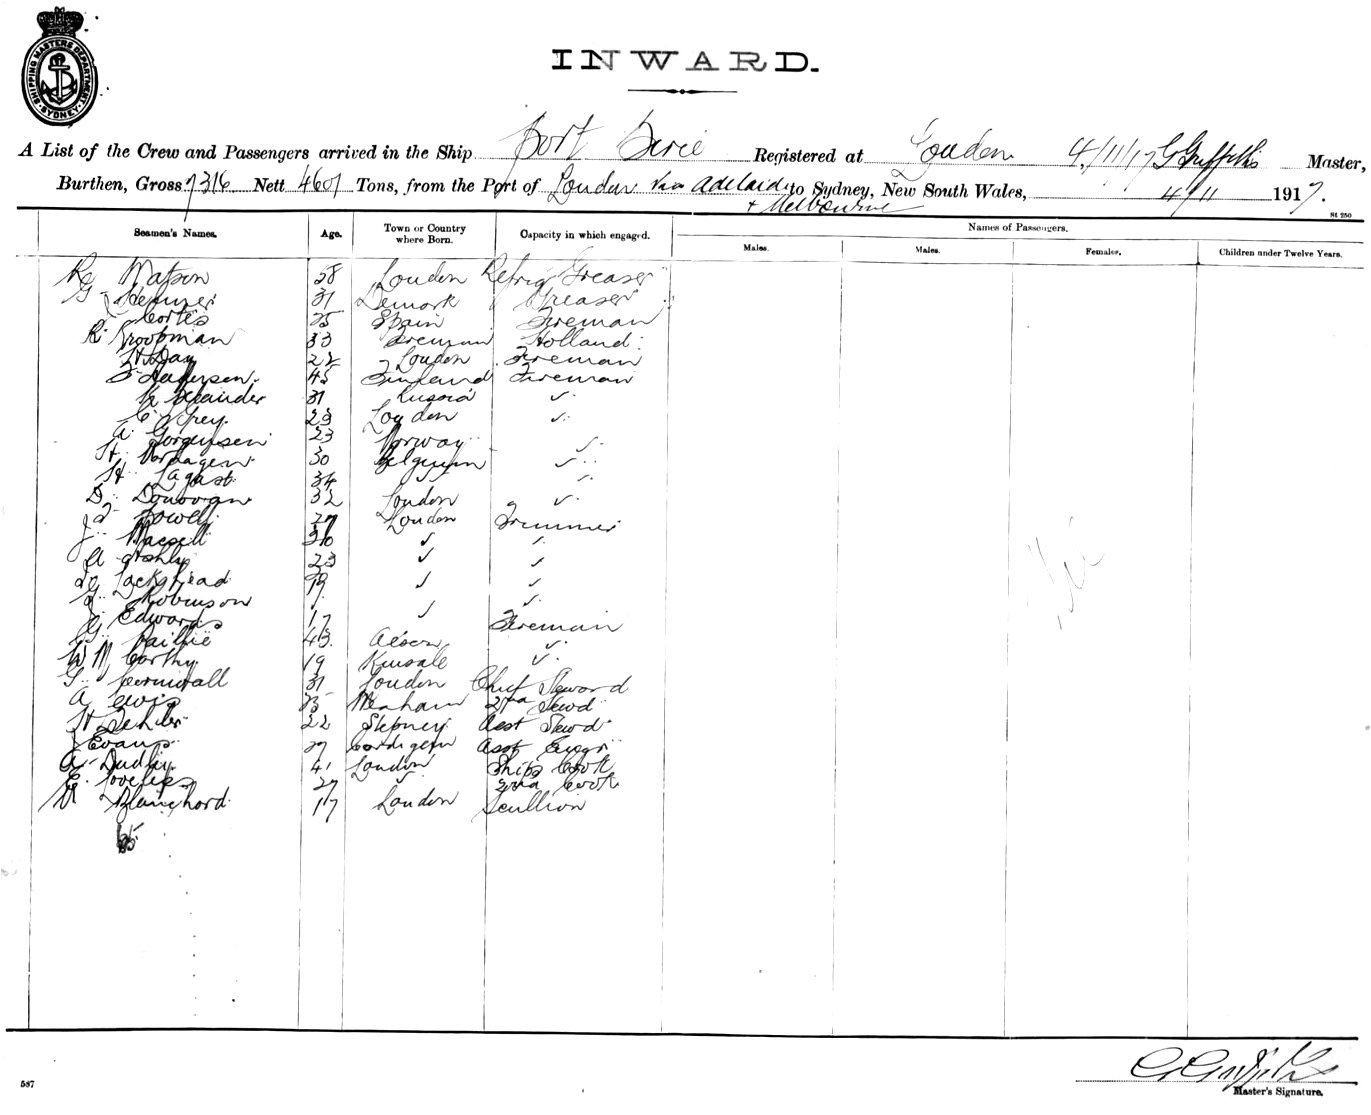 SHIPPING MASTERS DEPARTMENT SYDNEY
INWARD.
A List of the Crew and Passengers arrived in the Ship Port Pirie Registered at London 4/11/17 G Griffiths Master,
Burthen, Gross 7316 Nett 4601 Tons, from the Port of London via Adelaide to Sydney, New South Wales, 4/11 1917.
& Melbourne
St 250
Seamen's Names. Age. Town or Country where Born. Capacity in which engaged. Names of Passengers.
Males. Males. Females. Children under Twelve Years.
R Watson 58 London Refrig Greaser
G 31 Demark Greaser
Cortes 25 Spain Fireman
R Koopman 33 Fireman Holland
H Day 22 London Fireman
F 45 Finland Fireman
31 Russia ✓
C Grey 23 London ✓
A Jorgensen 23 Norway ✓
H 30 Belgium ✓
H Lagast 34 ✓
D Donovan 32 London ✓
J Powell 27 London Trimmer
J 30 ✓ ✓
A Ashly 23 ✓ ✓
Lockshead 19 ✓ ✓
Robinson ✓
G Edwards 17 ✓ Fireman
G Baillie 43 ✓
W McCarthy 19 Kinsale ✓
G Cornwall 31 London Chief Steward
A Lewis 25 2nd Stewd
H 22 Stepney Asst Stewd
J Evans 27 Cardigan Asst
A Dudley 41 London Ships Cook
E 27 ✓ 2nd Cook
Blanchard 17 London Scullion
65
Nil
G Griffiths
Master's Signature.
587